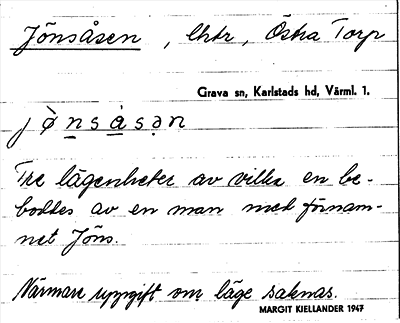 Jönsåsen, lhtr, Östra Torp
Grava sn, Karlstads hd, Värml. 1.
jø̀nsàsən
Tre lägenheter av vilka en be-
boddes av en man med förnam-
net Jöns.
Närmare uppgift om läge saknas.
MARGIT KIELLANDER 1947